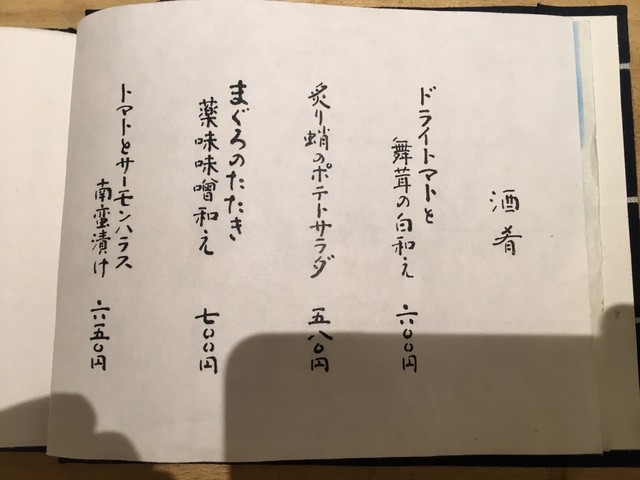 酒肴
ドライトマトと
舞茸の白和え 六〇〇円
炙り蛸のポテトサラダ 五八〇円
まぐろのたたき
薬味味噌和え 七〇〇円
トマトとサーモンハラス
南蛮漬け 六五〇円